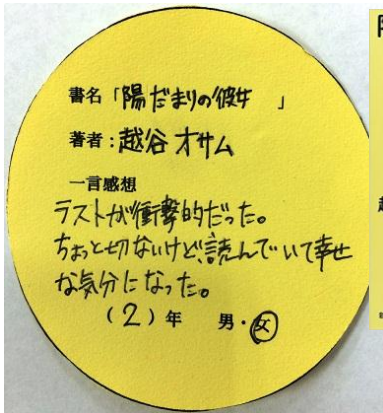 書名「陽だまりの彼女　」
著者：越谷オサム
一言感想
ラストが衝撃的だった。
ちょっと切ないけど、読んでいて幸せ
な気分になった。
（２）年　男・女